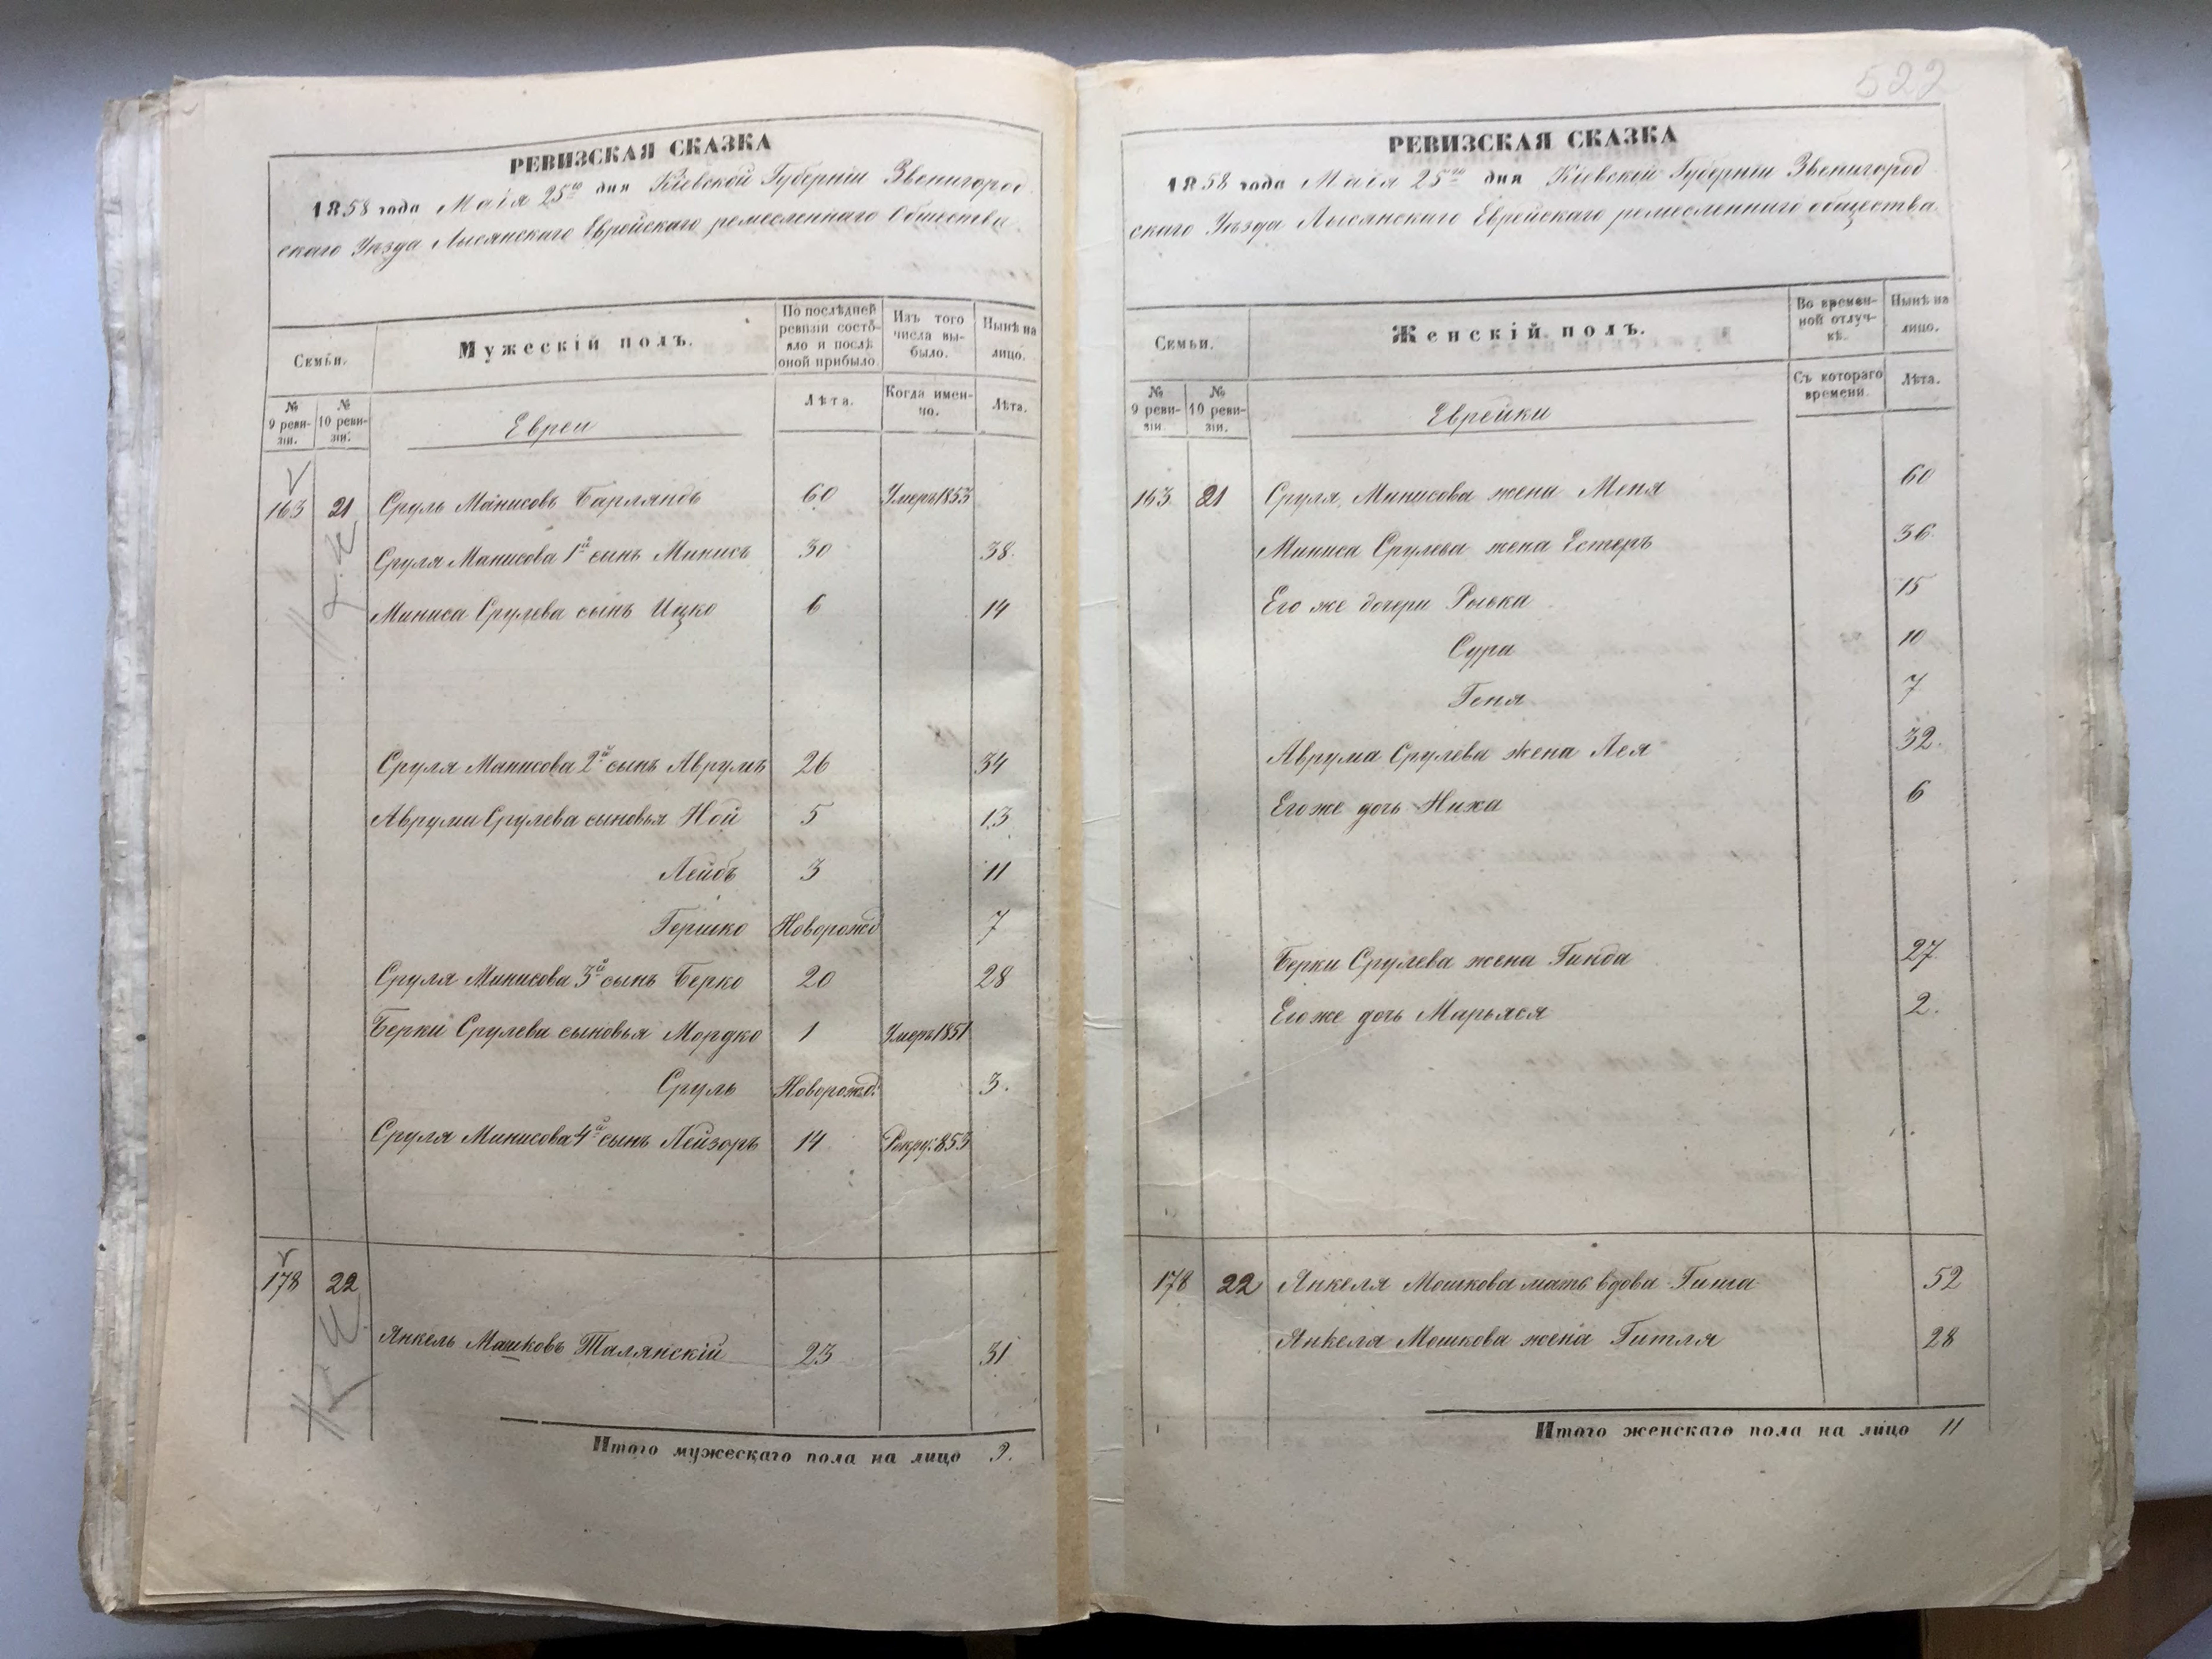 522
РЕВИЗСКАЯ СКАЗКА
1858 года Маія 25го дня Кіевской Губерніи Звенигород
скаго Уѣзда Лысянскаго Еврейскаго ремесленнаго Общества
Семьи.
Мужескій полъ.
По послѣдней ревизіи состояло и послѣ оной прибыло.
Изъ того числа выбыло.
Нынѣ на лицо.
№ 9 ревизіи.
№ 10 ревизіи.
Евреи
Лѣта.
Когда именно.
Лѣта.
163 21 Сруль Манисовъ Барляндъ 60 Умеръ 1853
Сруля Манисова 1й сынъ Минисъ 30 38
Миниса Срулева сынъ Ицко 6 14
Сруля Манисова 2й сынъ Аврумъ 26 34
Аврума Срулева сыновья Ной 5 13
Лейбъ 3 11
Гершко Новорожд 7
Сруля Минисова 3й сынъ Берко 20 28
Берки Срулева сыновья Мордко 1 Умеръ 1851
Сруль Новорожд. 3.
Сруля Минисова 4й сынъ Лейзоръ 14 Рекру. 853
178 22
Янкель Машковъ Талянскій 23 31
Итого мужескаго пола на лицо 9.
РЕВИЗСКАЯ СКАЗКА
1858 года Маія 25го дня Кіевской Губерніи Звенигород
скаго Уѣзда Лысянскаго Еврейскаго ремесленнаго общества
Семьи.
Женскій полъ.
Во временной отлучкѣ.
Нынѣ на лицо.
№ 9 ревизіи.
№ 10 ревизіи.
Еврейки
Съ котораго времени.
Лѣта.
163 21 Сруля Минисова жена Меня 60
Миниса Срулева жена Естеръ 36
Его же дочери Рывка 15
Сура 10
Геня 7
Аврума Срулева жена Лея 32.
Его же дочь Ниха 6
Берки Срулева жена Гинда 27
Его же дочь Марьяся 2.
178 22 Янкеля Мошкова мать вдова Гиша 52
Янкеля Мошкова жена Гитля 28
Итого женскаго пола на лицо 11